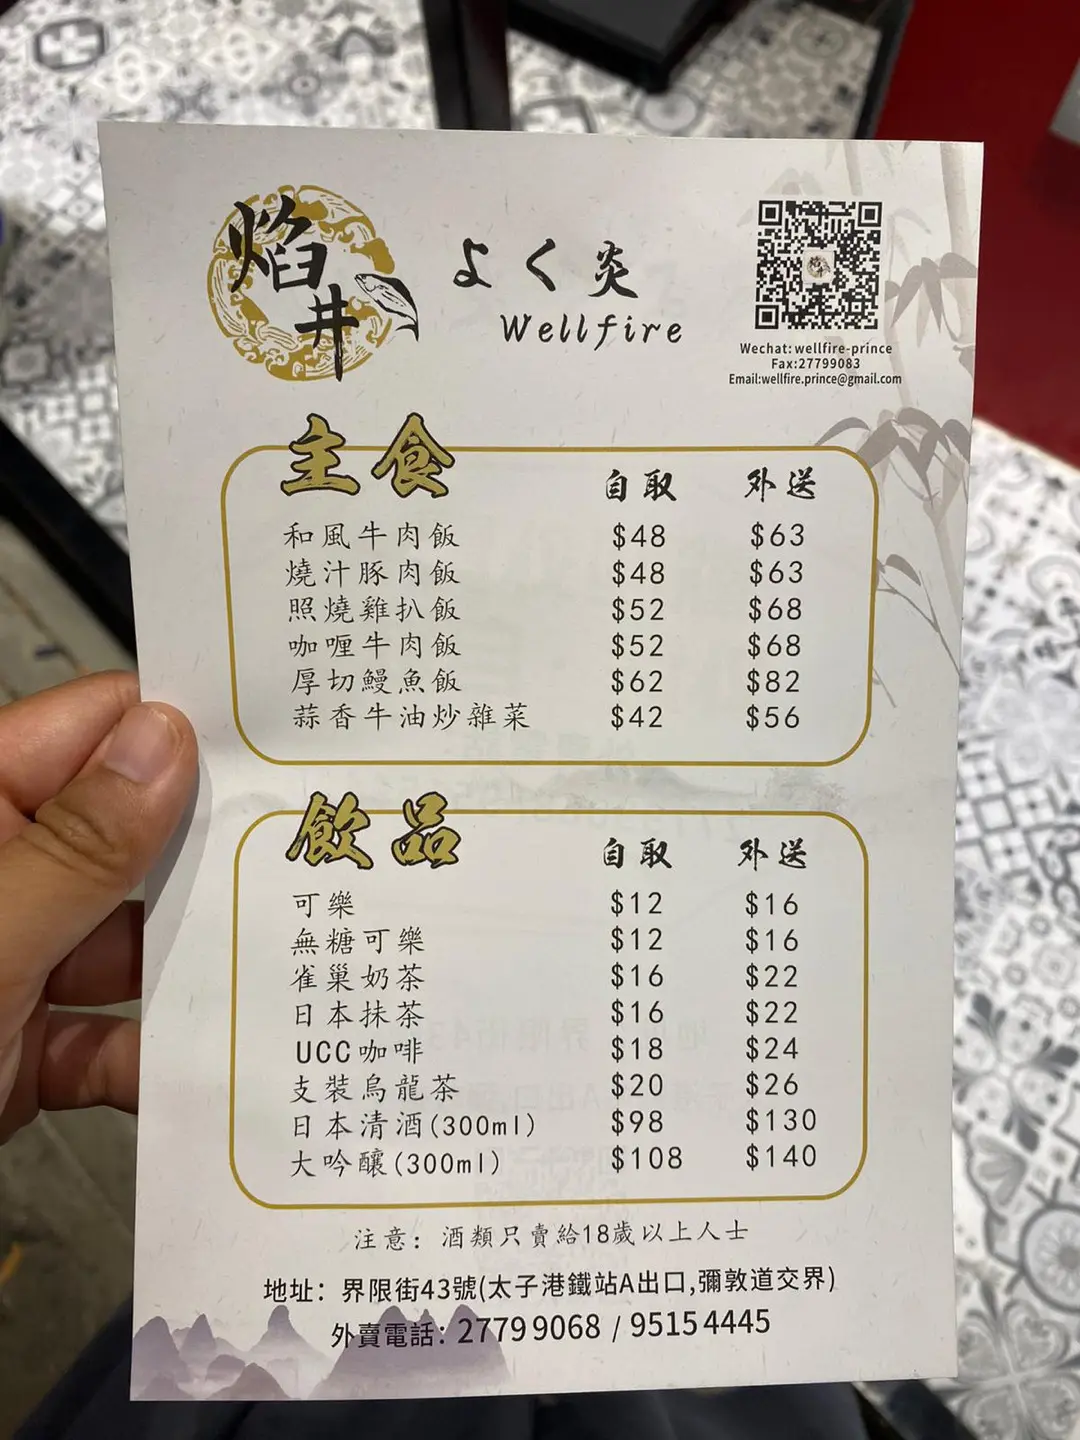 焰井
よく炎
Wellfire
Wechat: wellfire-prince
Fax:27799083
Email:wellfire.prince@gmail.com
主食 自取 外送
和風牛肉飯 $48 $63
燒汁豚肉飯 $48 $63
照燒雞扒飯 $52 $68
咖喱牛肉飯 $52 $68
厚切鰻魚飯 $62 $82
蒜香牛油炒雜菜 $42 $56
飲品 自取 外送
可樂 $12 $16
無糖可樂 $12 $16
雀巢奶茶 $16 $22
日本抹茶 $16 $22
UCC咖啡 $18 $24
支裝烏龍茶 $20 $26
日本清酒(300ml) $98 $130
大吟釀(300ml) $108 $140
注意：酒類只賣給18歲以上人士
地址：界限街43號(太子港鐵站A出口,彌敦道交界)
外賣電話：2779 9068 / 9515 4445